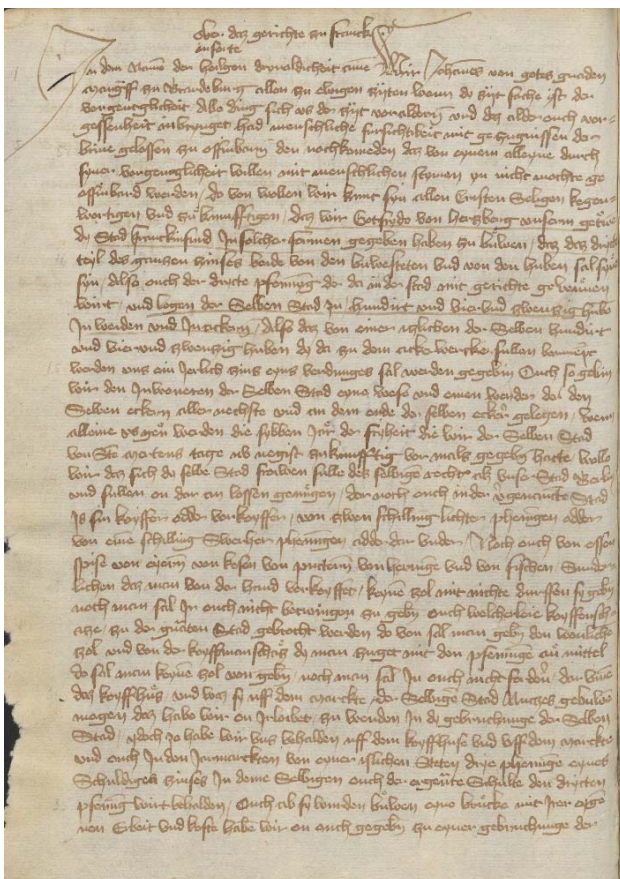 ober daz gerichte zu franck
infurte
In dem Namen der heiligen dryualdicheit amen Wir Johannes von gotis gnaden
marggff zu Brandeburg allen zu ewigen zyten wenn do zyt sache ist der
vorgenglicheit Alle ding sich us der zyt voraldern und daz alder ouch vor=
gessenheit inbrenget had menschliche fursichtikeit mit gezugnissen der
brine gelossen zu offinbarn den nochkomeden daz von eynem alleyne durch
syner vorgenglicheit willen mit menschlichen stymen yn nicht mochte ge
offinbard werden do von wollen wir kunt syn allen Cristen Seligen kegen=
wortigen und zukunfftigen daz wir Gotfrydo von Herzberg unserm getrwe
dy Stad franckinfurd In solcher formen gegeben haben zu buwen daz daz dritte
teyl des ganczen zinses beide von den buwesteten und von den huben sal syn
syn Also ouch der dritte pfenning der do in der stad mit gerichte gewunnen
wirt und legen der Selben Stad zu hundirt und vier und zwenzig hube
In weiden und In eckern Also daz von einer iglichen der Selben hundirt
und vier und zwenzig huben dy do zu dem acker wercke fullen
werden uns ein Jerlich zins eyns verdunges sal werden gegebin Ouch so gebin
wir den Inwoneren der Selben Stad eyne wese und einen werder bei den
Selben eckern aller nechste und an dem ende der selben ecker gelegen wenn
alleine usgen werden die sybben Jar der fryheit die wir der Selben Stad
von Ste mertens tage nehist zukunfftig vormals gegebin hatte wolle
wir daz sich dy selbe Stad frowen sulle des selbige recht als unse Stad Berlin
und sullen on dor an lossen genugen dor noch ouch in der vgenante Stad
Is sin koyffer odder vorkoyffer von zwen schilling lichter phennigen odder
von eime schilling Swerher phennigen adder dor under Noch ouch von essen
spise von eyern von kesen von puctern von heringe und von fischen Sunder
lichen daz man von der hand vorkoyffet keyne zol mit nichte durffen sy gebin
noch man sal In ouch nicht betwingen zu gebin ouch welcherleie koyffensch
acze zu der gnaten Stad gebrocht werden do von sal man gebin den
zol und von der koyffmanschacz dy man zuget mit den pfenninge mittel
do sal man keyne zol von gebin noch man sal In ouch nicht fordern der
daz koyffhus und waz sy uff dem marckte der Selbigen Stad Nuczes gebuwen
mogen daz habe wir on Irlowbet zu wenden In dy gebruchunge der Selben
Stad ydoch so habe wir uns behalden uff dem koyffhuse und uff dem marckte
und ouch In den Jarmarckten von eyner islichen Steten drie phennige eynes
Schuldigen zinses In deme Selbigen ouch der egenante Schulte den dritten
pfennig wirt behalden Ouch ab sy wurden buwen eyne brucke mit Irer eige
nen Erbeit und koste habe wir on ouch gegebin zu eyner gebruchunge der